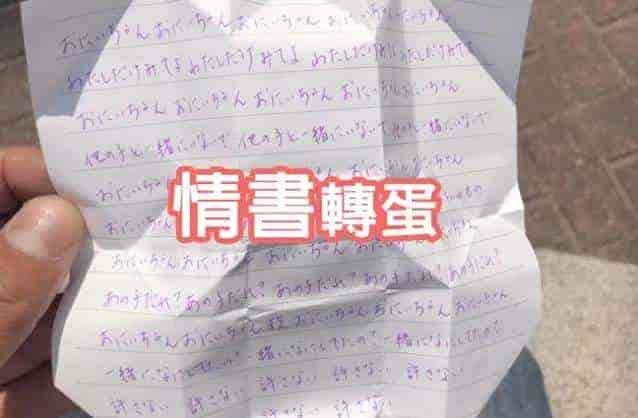 おにいちゃん おにいちゃん おにいちゃん おにいちゃん おにいちゃん
わたしだけみてよ わたしだけみてよ わたしだけみてよ
おにいちゃん おにいちゃん おにいちゃん おにいちゃん おにいちゃん
他の子と一緒にいないで 他の子と一緒にいないで 他の子と一緒にいないで
おにいちゃん おにいちゃん
情書轉蛋
おにいちゃん おにいちゃん おにいちゃん おにいちゃん
あの子だれ? あの子だれ? あの子だれ? あの子だれ? あの子だれ?
おにいちゃん おにいちゃん おにいちゃん おにいちゃん おにいちゃん
一緒になにしてたの? 一緒になにしてたの? 一緒になにしてたの?
許さない 許さない 許さない 許さない 許さない
許さない 許さない 許さない 許さない 許さない